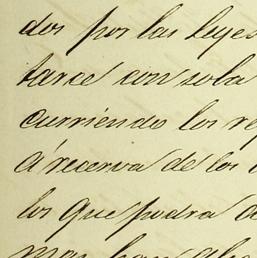 dos por las leyes
tarce con sola
curriendo los re
á recerva de los
los que podra d
mas han